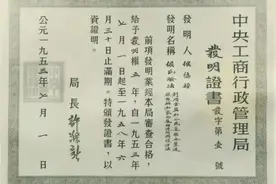 中央工商行政管理局
發明證書
發字第壹號
發明人 侯德榜
發明名稱 侯氏碱法
前項發明業經本局審查合格，
給予發明權五年，自一九五三年
七月一日起至一九五八年六
月三十日止滿期。特頒發證書，以
資證明。
局長 許滌新
公元一九五三年七月一日